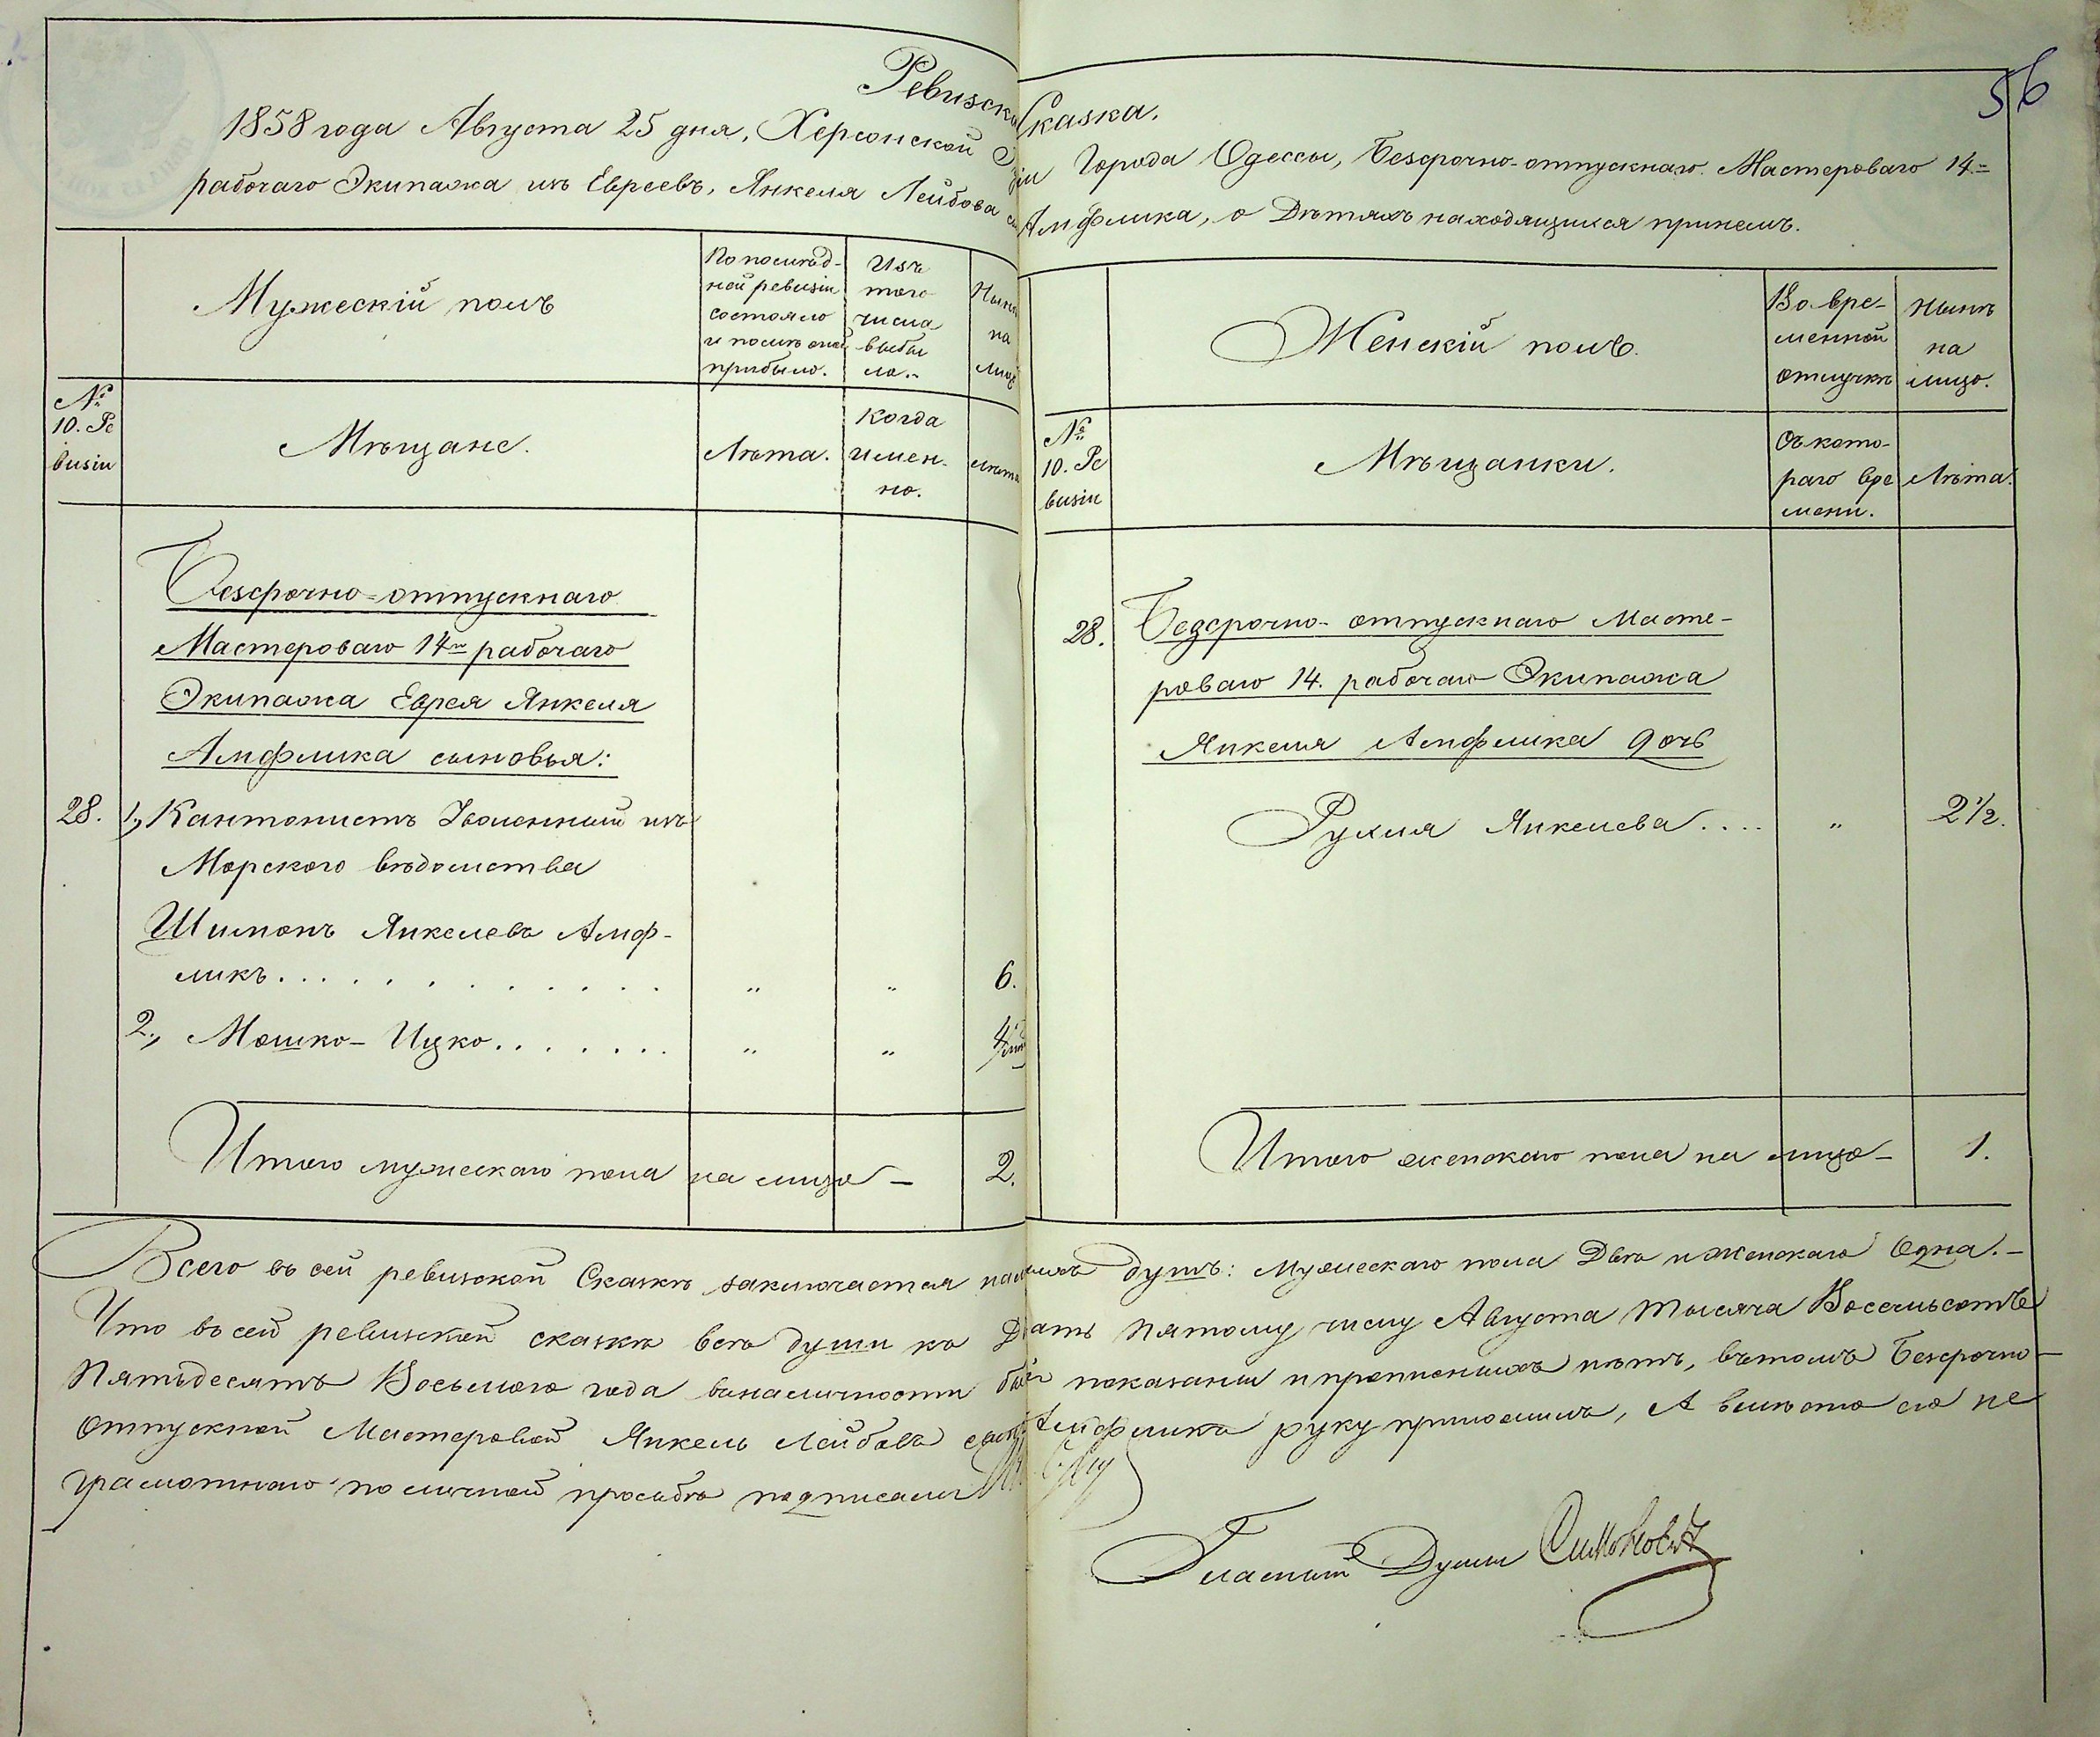 56
Ревизска Сказка.
1858 года Августа 25 дня, Херсонской Города Одессы, Безсрочно-отпускнаго Мастероваго 14=
рабочаго Экипажа изъ Евреевъ, Янкеля Лейбова Амфлика, о Дѣтяхъ находящихся при немъ.
Мужескій полъ
По послѣд-
ней ревизіи
состояло
и послѣ оной
прибыло.
Изъ
того
числа
выбы
ло.
Нынѣ
на
лицо
№
10. Ре
визіи
Мѣщане.
Лѣта.
Когда
имен-
но.
Лѣта
Безсрочно-отпускнаго
Мастероваго 14го рабочаго
Экипажа Еврея Янкеля
Амфлика сыновья:
28. 1., Кантонистъ Уволенный изъ
Морскаго вѣдомства
Шимонъ Янкелевъ Амф-
ликъ. . . . . . . . . . . " " 6.
2., Мошко-Ицко. . . . . . . " " 4
Итого мужескаго пола на лицо — 2.
Женскій полъ.
Во вре-
менной
отлучкѣ
Нынѣ
на
лицо.
№
10. Ре
визіи
Мѣщанки.
Съ кото-
раго вре
мени.
Лѣта.
28. Безсрочно-отпускнаго Масте-
роваго 14. рабочаго Экипажа
Янкеля Амфлика дочь
Рухля Янкелева.... " 2½.
Итого женскаго пола на лицо — 1.
Всего въ сей ревизской Сказкѣ заключается душъ: Мужескаго пола Двѣ и Женскаго Одна.—
Что въ сей ревизской сказкѣ всѣ души къ Двадцать Пятому числу Августа Тысяча Восемьсотъ
Пятьдесятъ Восьмого года въ наличности бывшія показаны и прописныхъ нѣтъ, въ томъ Безсрочно-
отпускной Мастеровой Янкель Лейбовъ Амфликъ руку приложилъ, А вмѣсто его не
грамотнаго по личной просьбѣ подписалъ
Гласный Думы Симоновичъ